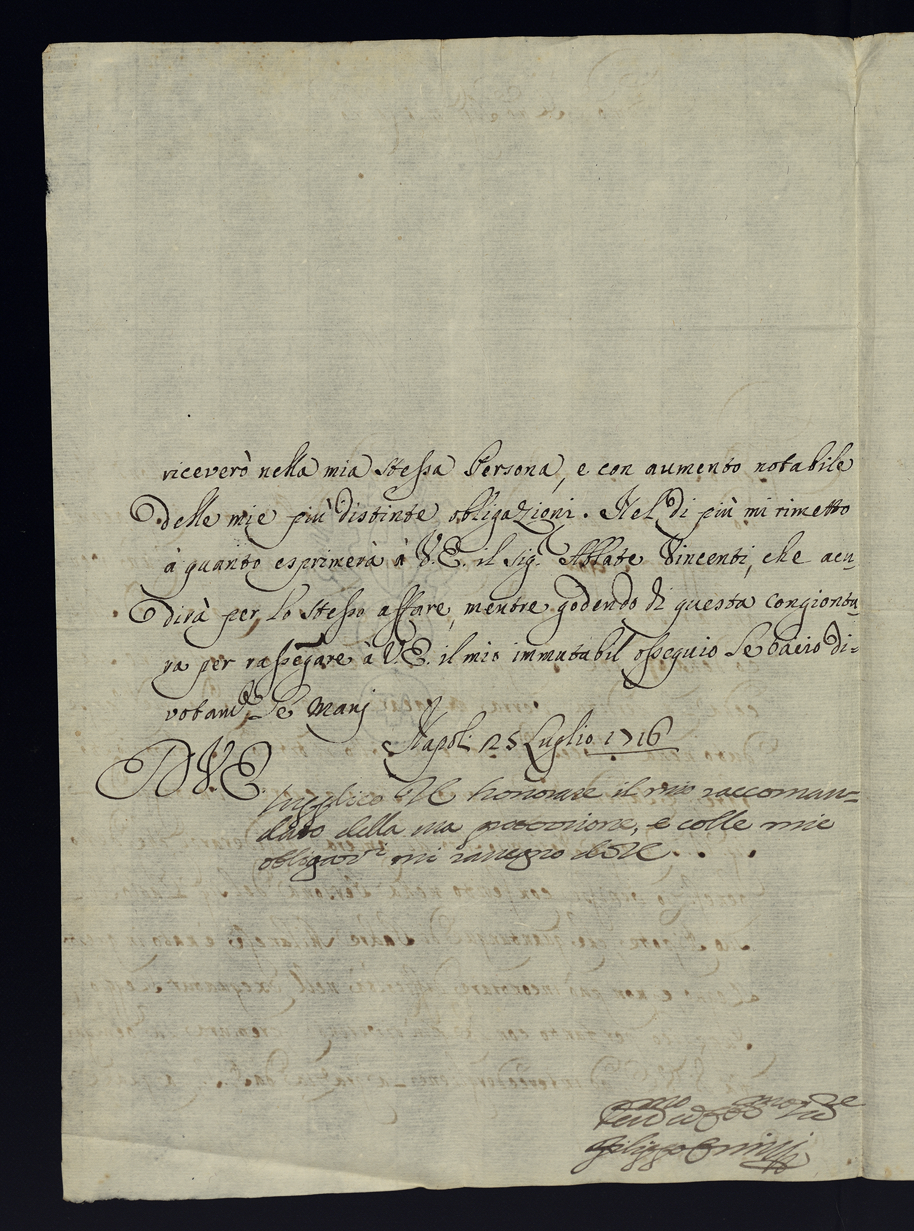 riceverò nella mia stessa Persona, e con aumento notabile
delle mie più distinte obligazioni. Nel di più mi rimetto
à quanto esprimerà à V.E. il Sig.r Abbate Vincenti, che accu-
dirà per lo stesso affare, mentre godendo di questa congiontu-
ra per rassegnare à V.E. il mio immutabil ossequio Le bacio di-
votam.te Le Manj
Napoli 25 Luglio 1716
D V.E.
supplico VE honorare il mio raccoman-
dato della sua protezione, e colle mie
mi rassegno di VE
Filippo